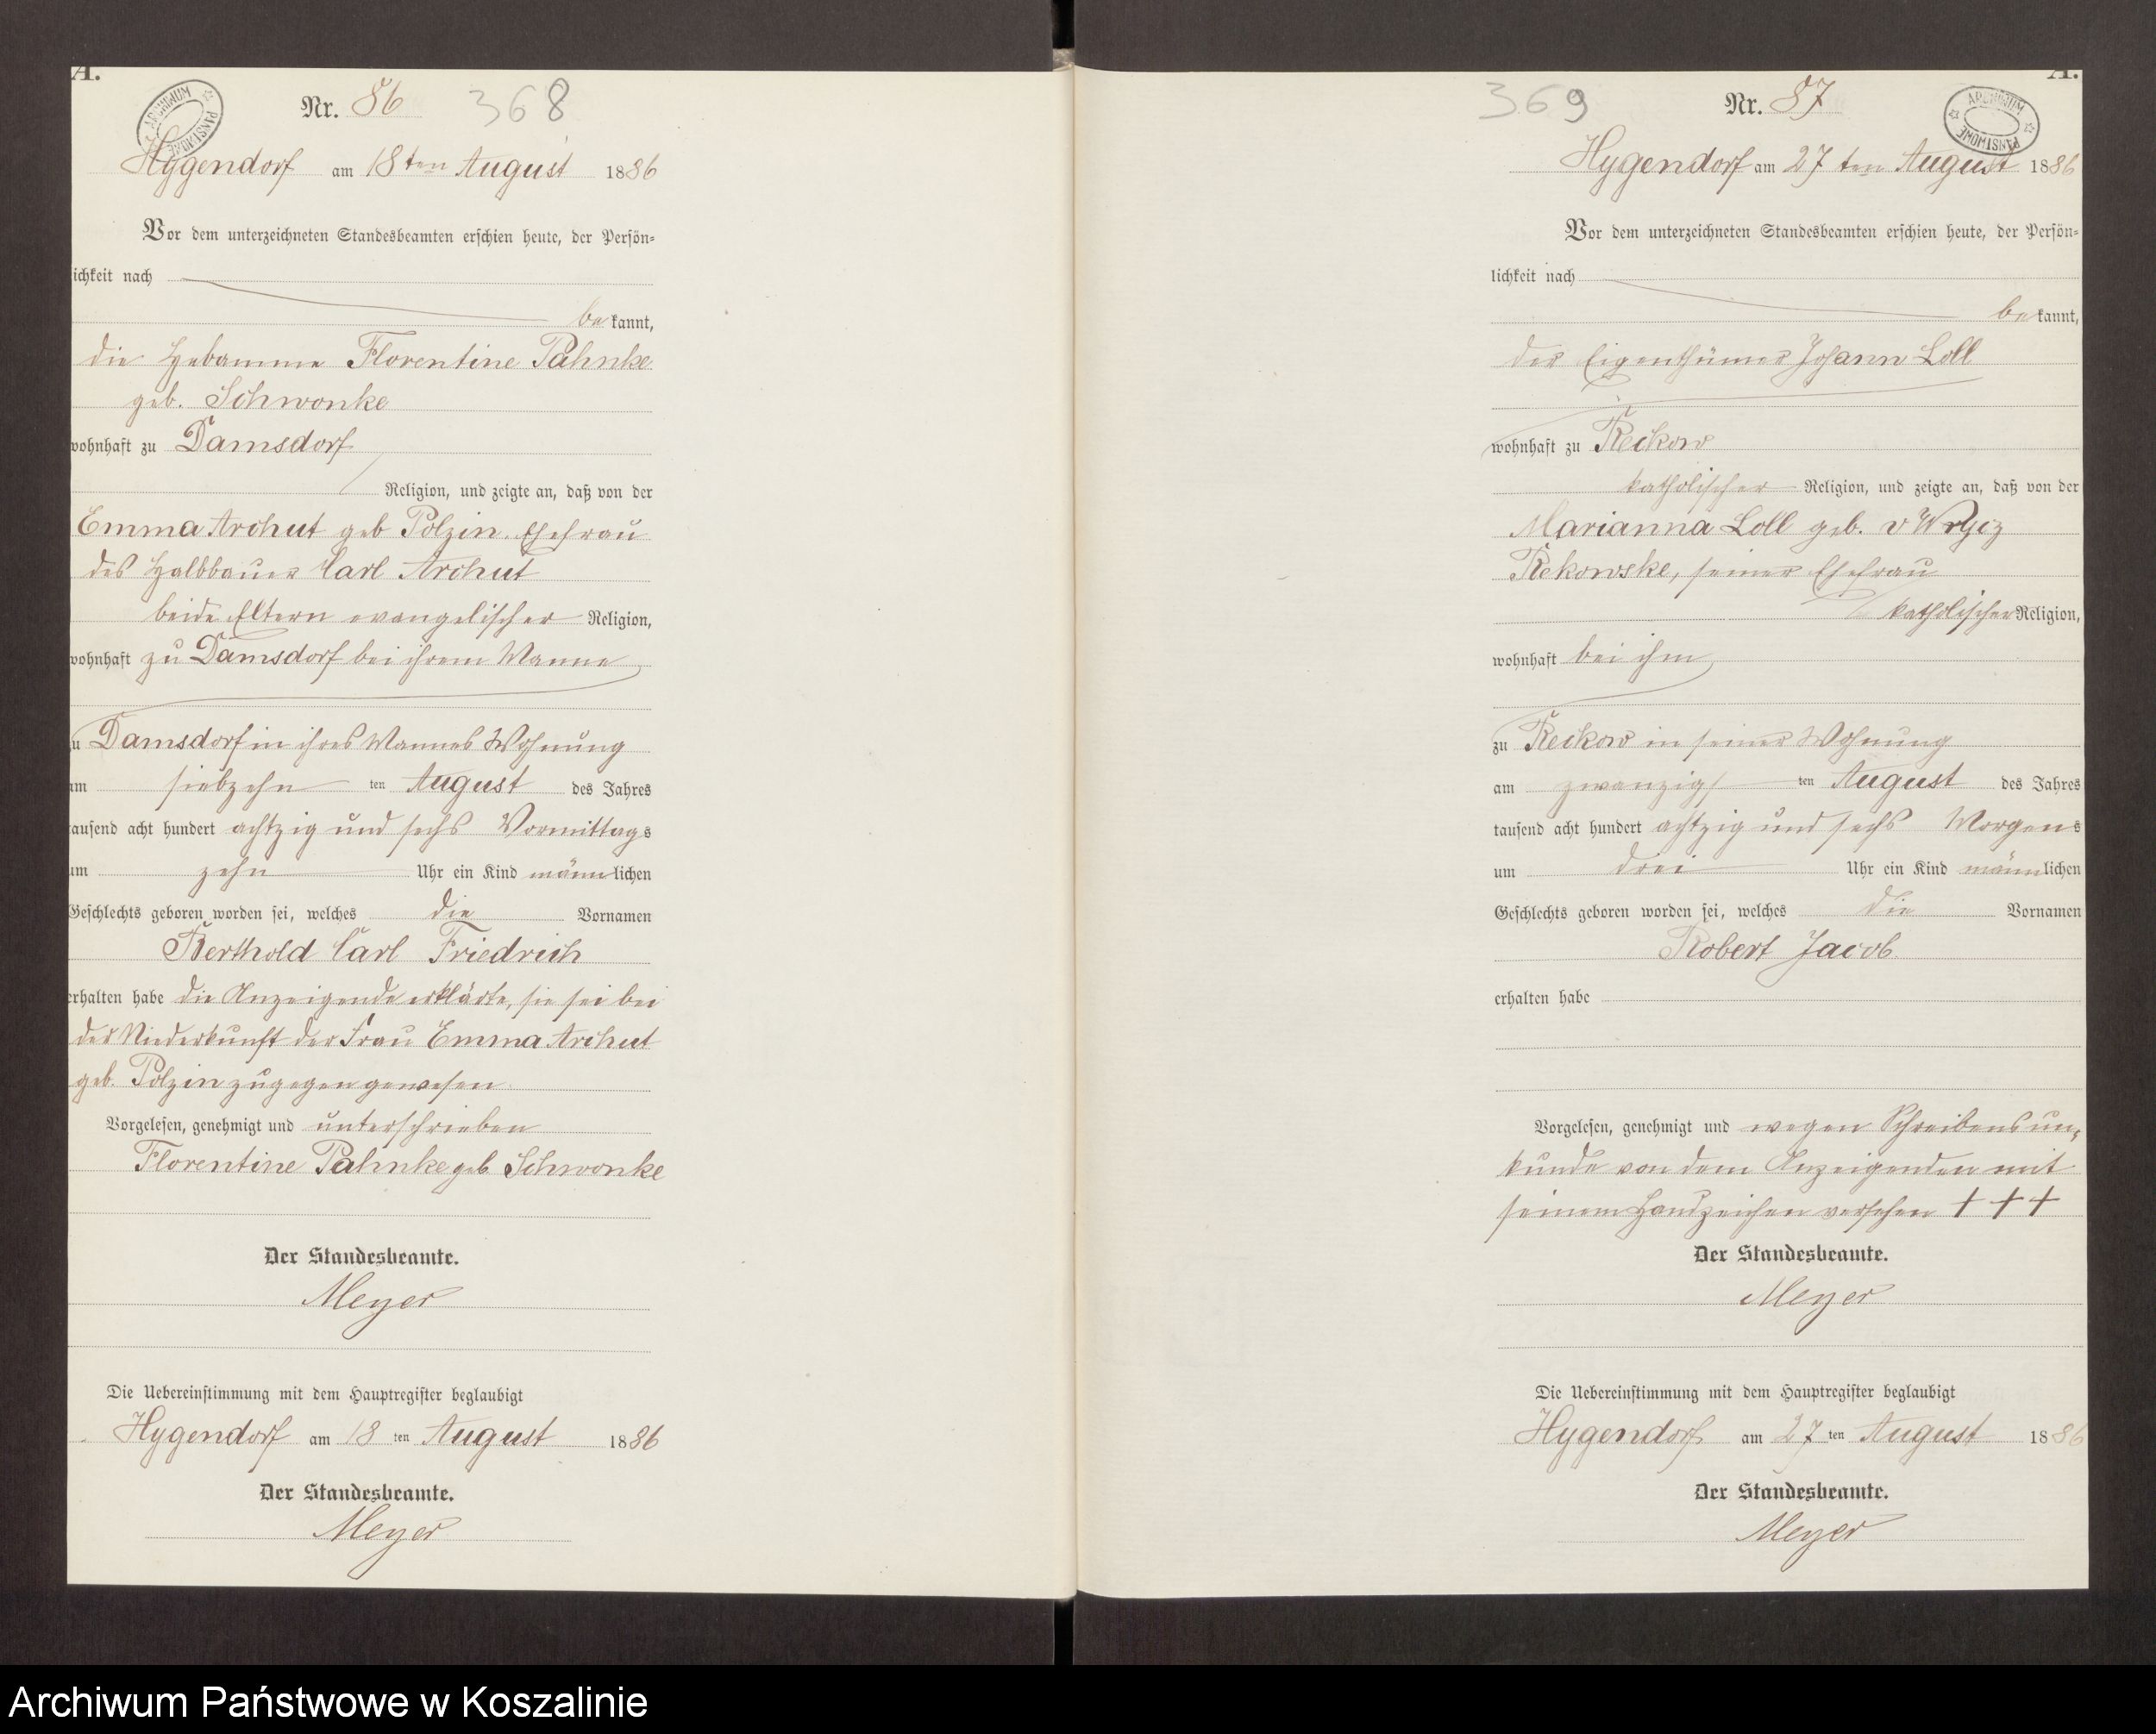 A.
ARCHIWUM PAŃSTWOWE
Nr. 86 368
Hygendorf am 18ten August 1886
Vor dem unterzeichneten Standesbeamten erschien heute, der Persön=
lichkeit nach
bekannt,
die Hebamme Florentine Pahnke
geb. Schwonke
wohnhaft zu Damsdorf
Religion, und zeigte an, daß von der
Emma Archut geb Polzin. Ehefrau
des Halbbauer Carl Archut
beide Eltern evangelischer Religion,
wohnhaft zu Damsdorf bei ihrem Manne
zu Damsdorf in ihres Mannes Wohnung
am siebzehn ten August des Jahres
tausend acht hundert achtzig und sechs Vormittags
um zehn Uhr ein Kind männlichen
Geschlechts geboren worden sei, welches die Vornamen
Berthold Carl Friedrich
erhalten habe die Anzeigende erklärte, sie sei bei
der Niederkunft der Frau Emma Archut
geb. Polzin zugegen gewesen
Vorgelesen, genehmigt und unterschrieben
Florentine Pahnke geb Schwonke
Der Standesbeamte.
Meyer
Die Uebereinstimmung mit dem Hauptregister beglaubigt
Hygendorf am 18 ten August 1886
Der Standesbeamte.
Meyer
A.
ARCHIWUM PAŃSTWOWE
369 Nr. 87
Hygendorf am 27 ten August 1886
Vor dem unterzeichneten Standesbeamten erschien heute, der Persön=
lichkeit nach
bekannt,
der Eigenthümer Johann Loll
wohnhaft zu Reckow
katholischer Religion, und zeigte an, daß von der
Marianna Loll geb. v Wrycz
Rekowske, seiner Ehefrau
katholischer Religion,
wohnhaft bei ihm
zu Reckow in seiner Wohnung
am zwanzigs ten August des Jahres
tausend acht hundert achtzig und sechs Morgens
um drei Uhr ein Kind männlichen
Geschlechts geboren worden sei, welches die Vornamen
Robert Jacob
erhalten habe
Vorgelesen, genehmigt und wegen Schreibensun=
kunde von dem Anzeigenden mit
seinem Handzeichen versehen + + +
Der Standesbeamte.
Meyer
Die Uebereinstimmung mit dem Hauptregister beglaubigt
Hygendorf am 27 ten August 1886
Der Standesbeamte.
Meyer
Archiwum Państwowe w Koszalinie